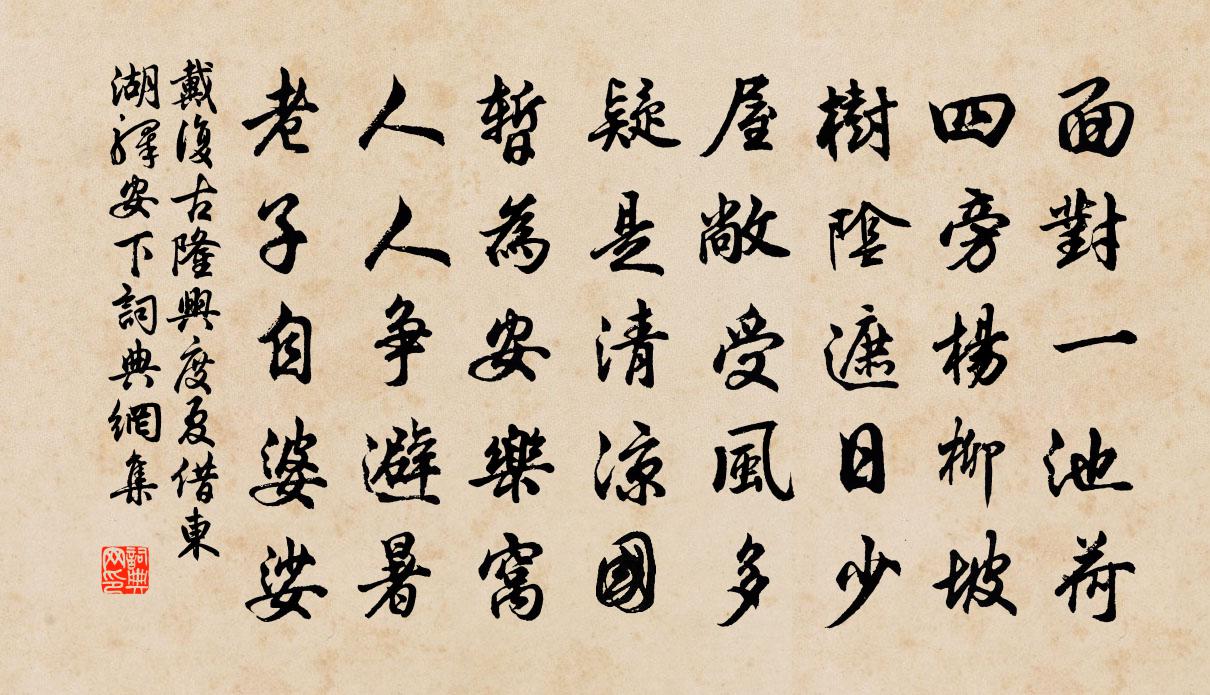 面對一池荷
四旁楊柳坡
樹陰遮日少
屋敞受風多
疑是清涼國
暫為安樂窩
人人爭避暑
老子自婆娑
戴復古隆興度夏借東
湖驛安下詞典網集
詞典網印